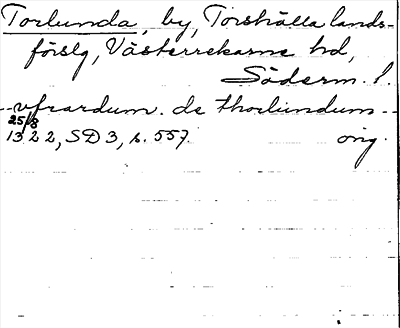 Torlunda, by, Torshälla lands-
förslg, Västerrekarne hd,
Söderm. l.
vfrardum. de thorlundum
25/8
1322, SD 3, s. 557 orig.